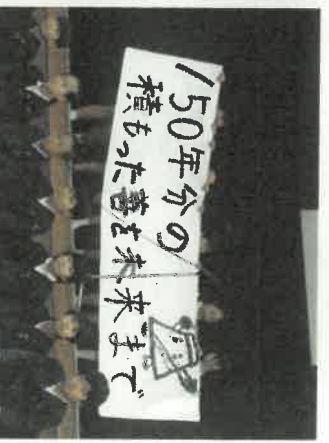 150年分の
積もった善を未来まで